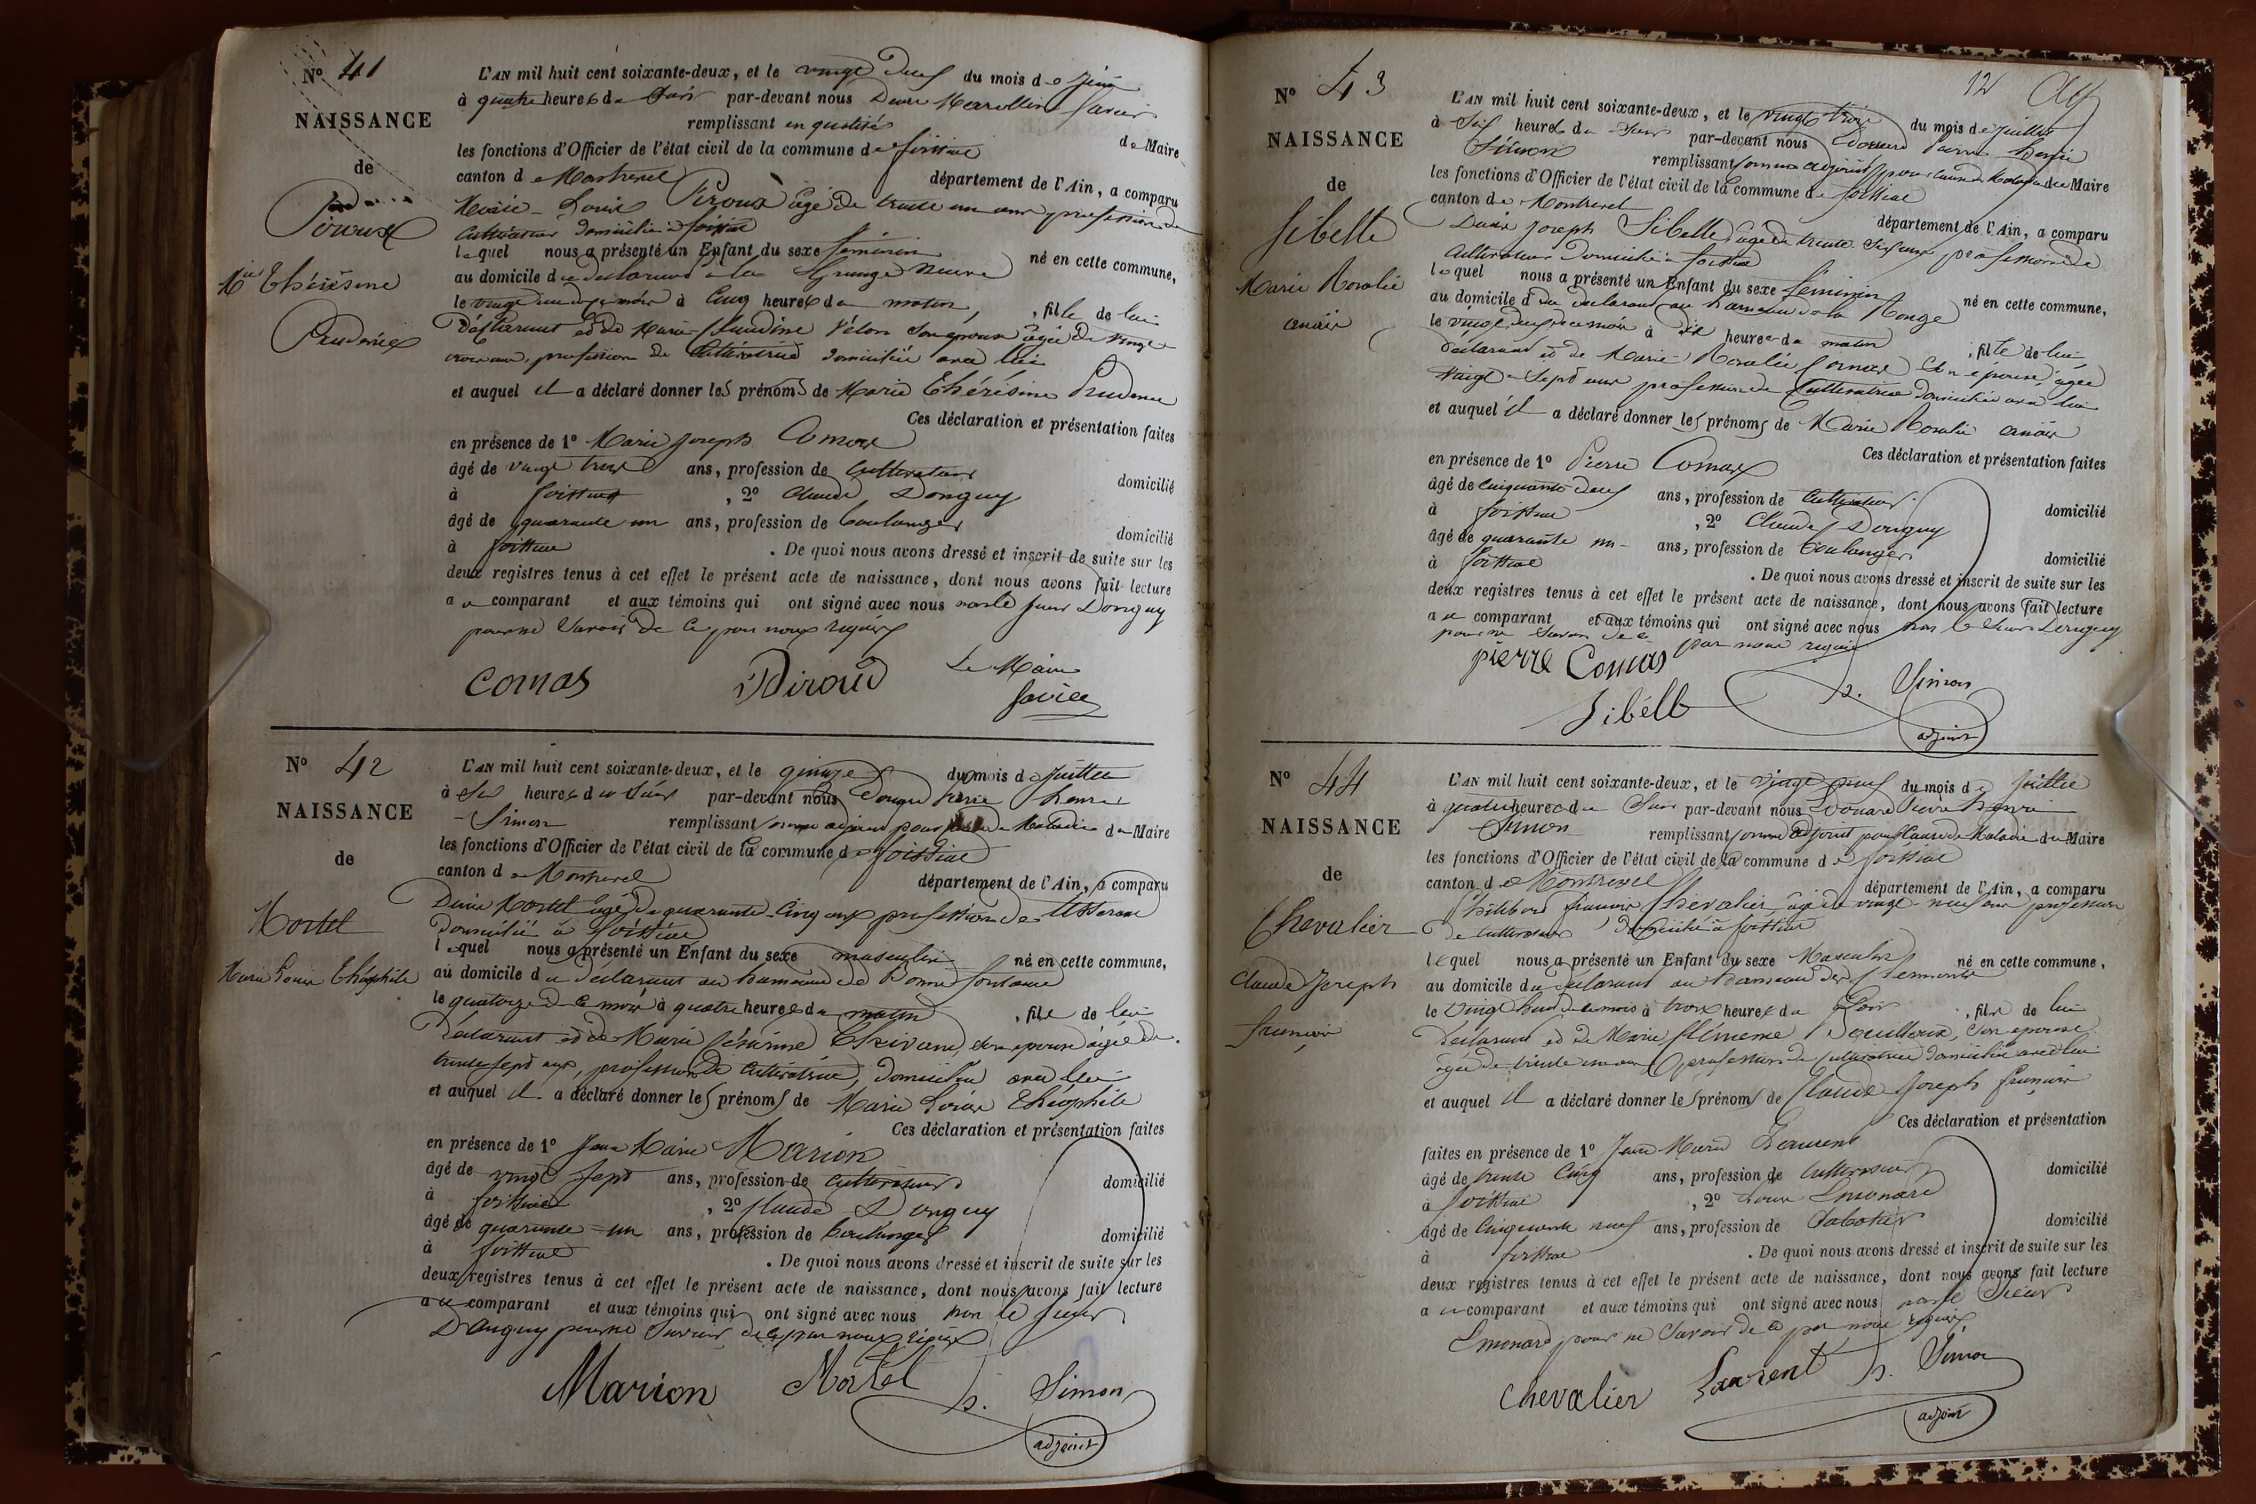 N° 41
NAISSANCE
de
Piroux
Mie Thérésine
Prudence
L'AN mil huit cent soixante-deux, et le vingt deux du mois de Juin
à quatre heures du Soir par-devant nous
remplissant en qualité de Maire
les fonctions d'Officier de l'état civil de la commune de foissiat
canton de Montrevel département de l'Ain, a comparu
Marie Louis Piroux âgé de trente un ans profession de
Cultivateur domicilié à foissiat
lequel nous a présenté un Enfant du sexe féminin né en cette commune,
au domicile du déclarant à la Grange Neuve
le vingt deux du mois à Cinq heures du matin, fille de lui
Déclarant et de Marie Claudine Vélon Son épouse âgée de vingt
trois ans, profession de Cultivatrice domiciliée avec lui
et auquel il a déclaré donner les prénoms de Marie Thérésine Prudence
Ces déclaration et présentation faites
en présence de 1° Marie Joseph Comas
âgé de vingt trois ans, profession de Cultivateur domicilié
à foissiat, 2° Claude Donguy
âgé de quarante un ans, profession de boulanger domicilié
à foissiat. De quoi nous avons dressé et inscrit de suite sur les
deux registres tenus à cet effet le présent acte de naissance, dont nous avons fait lecture
au comparant et aux témoins qui ont signé avec nous non le sieur Donguy
pour ne Savoir de Ce par nous requis
Comas Piroud Le Maire
N° 42
NAISSANCE
de
Mortel
Marie Louis Théophile
L'AN mil huit cent soixante-deux, et le quinze du mois de Juillet
à Six heures du Soir par-devant nous Edouard Pierre Henri
Simon remplissant comme adjoint pour cause de Maladie du Maire
les fonctions d'Officier de l'état civil de la commune de foissiat
canton de Montrevel département de l'Ain, a comparu
Denis Mortel âgé de quarante Cinq ans profession de
domicilié à foissiat
lequel nous a présenté un Enfant du sexe masculin né en cette commune,
au domicile du déclarant au hameau de Bonne fontaine
le quatorze de ce mois à quatre heures du matin, fils de lui
Déclarant et de Marie son épouse âgée de
trente sept ans, profession de Cultivatrice, domiciliée avec lui
et auquel il a déclaré donner les prénoms de Marie Louis Théophile
Ces déclaration et présentation faites
en présence de 1° Jean Marie Marion
âgé de vingt sept ans, profession de cultivateur domicilié
à foissiat, 2° Claude Donguy
âgé de quarante un ans, profession de boulanger domicilié
à foissiat. De quoi nous avons dressé et inscrit de suite sur les
deux registres tenus à cet effet le présent acte de naissance, dont nous avons fait lecture
au comparant et aux témoins qui ont signé avec nous non le sieur
Donguy pour ne Savoir de Ce par nous requis
Marion Mortel p. Simon
adjoint
12
N° 43
NAISSANCE
de
Sibelle
Marie Rosalie
anaïs
L'AN mil huit cent soixante-deux, et le vingt trois du mois de Juillet
à Six heures du Soir par-devant nous Edouard Pierre Henri
Simon remplissant comme adjoint pour cause de Maladie du Maire
les fonctions d'Officier de l'état civil de la commune de foissiat
canton de Montrevel département de l'Ain, a comparu
Denis Joseph Sibelle âgé de trente Six ans profession de
Cultivateur Domicilié à foissiat
lequel nous a présenté un Enfant du sexe féminin né en cette commune,
au domicile du déclarant au hameau de la Monge
le vingt deux de ce mois à dix heures du matin, fille de lui
déclarant et de Marie Rosalie Comas Son épouse, âgée
vingt Sept ans profession de Cultivatrice domiciliée avec lui
et auquel il a déclaré donner les prénoms de Marie Rosalie anaïs
Ces déclaration et présentation faites
en présence de 1° Pierre Comas
âgé de cinquante deux ans, profession de Cultivateur domicilié
à foissiat, 2° Claude Donguy
âgé de quarante un ans, profession de boulanger domicilié
à foissiat. De quoi nous avons dressé et inscrit de suite sur les
deux registres tenus à cet effet le présent acte de naissance, dont nous avons fait lecture
au comparant et aux témoins qui ont signé avec nous non le Sieur Donguy
pour ne Savoir de Ce par nous requis
pierre Comas
Sibéll p. Simon
adjoint
N° 44
NAISSANCE
de
Chevalier
Claude Joseph
françois
L'AN mil huit cent soixante-deux, et le vingt neuf du mois de Juillet
à quatre heures du Soir par-devant nous Edouard Pierre Henri
Simon remplissant comme adjoint pour Cause de Maladie du Maire
les fonctions d'Officier de l'état civil de la commune de foissiat
canton de Montrevel département de l'Ain, a comparu
Philibert françois Chevalier âgé de vingt-neuf ans profession
de Cultivateur Domicilié à foissiat
lequel nous a présenté un Enfant du sexe Masculin né en cette commune,
au domicile du déclarant au hameau des
le Vingt huit de ce mois à trois heures du Soir, fils de lui
déclarant et de Marie Clémence Son épouse,
âgée de trente un ans profession de Cultivatrice domiciliée avec lui
et auquel il a déclaré donner les prénoms de Claude Joseph françois
Ces déclaration et présentation
faites en présence de 1° Jean Marie Laurent
âgé de trente Cinq ans, profession de Cultivateur domicilié
à foissiat, 2° Louis Emonard
âgé de Cinquante neuf ans, profession de Sabotier domicilié
à foissiat. De quoi nous avons dressé et inscrit de suite sur les
deux registres tenus à cet effet le présent acte de naissance, dont nous avons fait lecture
au comparant et aux témoins qui ont signé avec nous non le Sieur
Emonard pour ne Savoir de Ce par nous requis
Chevalier Laurent p. Simon
adjoint